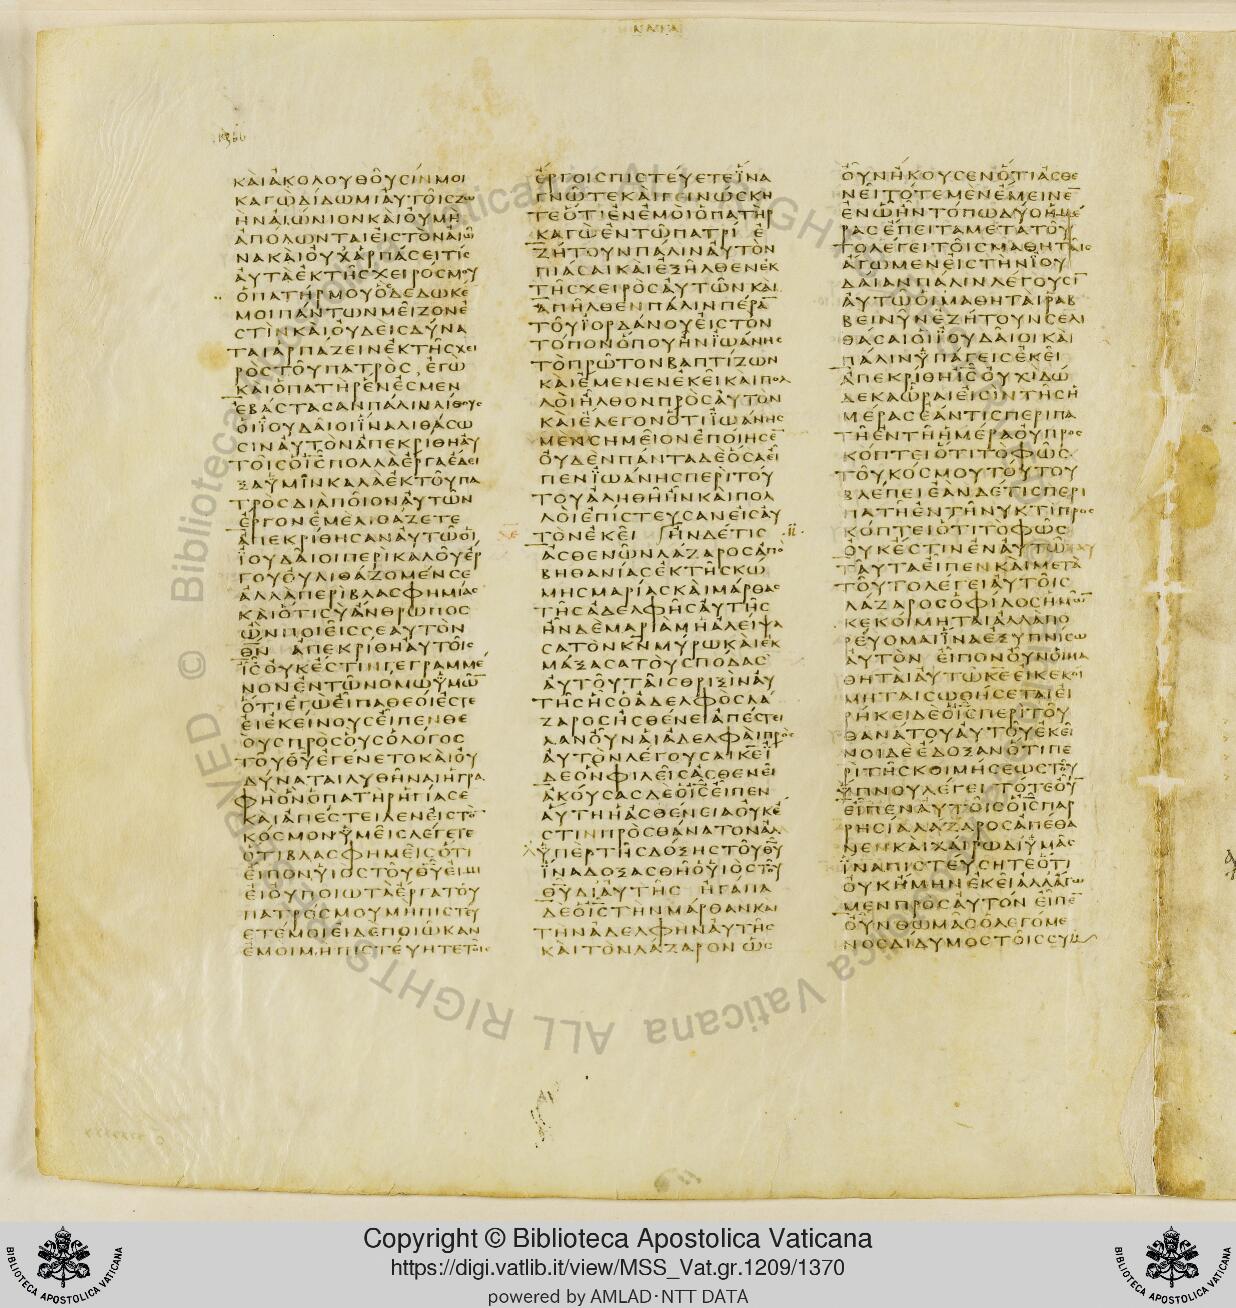 ΚΑΙΑΚΟΛΟΥΘΟΥΣΙΝΜΟΙ
ΚΑΓΩΔΙΔΩΜΙΑΥΤΟΙΣΖΩ
ΗΝΑΙΩΝΙΟΝΚΑΙΟΥΜΗ
ΑΠΟΛΩΝΤΑΙΕΙΣΤΟΝΑΙΩ
ΝΑΚΑΙΟΥΧΑΡΠΑΣΕΙΤΙΣ
ΑΥΤΑΕΚΤΗΣΧΕΙΡΟΣΜΟΥ
ΟΠΑΤΗΡΜΟΥΟΔΕΔΩΚΕ
ΜΟΙΠΑΝΤΩΝΜΕΙΖΟΝΕ
ΣΤΙΝΚΑΙΟΥΔΕΙΣΔΥΝΑ
ΤΑΙΑΡΠΑΖΕΙΝΕΚΤΗΣΧΕΙ
ΡΟΣΤΟΥΠΑΤΡΟΣ, ΕΓΩ
ΚΑΙΟΠΑΤΗΡΕΝΕΣΜΕΝ
ΕΒΑΣΤΑΣΑΝΠΑΛΙΝΛΙΘΟΥΣ
ΟΙΙΟΥΔΑΙΟΙΙΝΑΛΙΘΑΣΩ
ΣΙΝΑΥΤΟΝΑΠΕΚΡΙΘΗΑΥ
ΤΟΙΣΟΙΣΠΟΛΛΑΕΡΓΑΕΔΕΙ
ΞΑΥΜΙΝΚΑΛΑΕΚΤΟΥΠΑ
ΤΡΟΣΔΙΑΠΟΙΟΝΑΥΤΩΝ
ΕΡΓΟΝΕΜΕΛΙΘΑΖΕΤΕ
ΑΠΕΚΡΙΘΗΣΑΝΑΥΤΩΟΙ
ΙΟΥΔΑΙΟΙΠΕΡΙΚΑΛΟΥΕΡ
ΓΟΥΟΥΛΙΘΑΖΟΜΕΝΣΕ
ΑΛΛΑΠΕΡΙΒΛΑΣΦΗΜΙΑΣ
ΚΑΙΟΤΙΣΥΑΝΘΡΩΠΟΣ
ΩΝΠΟΙΕΙΣΣΕΑΥΤΟΝ
ΘΝ ΑΠΕΚΡΙΘΗΑΥΤΟΙΣ
ΙΣΟΥΚΕΣΤΙΝΓΕΓΡΑΜΜΕ
ΝΟΝΕΝΤΩΝΟΜΩΥΜΩ
ΟΤΙΕΓΩΕΙΠΑΘΕΟΙΕΣΤΕ
ΕΙΕΚΕΙΝΟΥΣΕΙΠΕΝΘΕ
ΟΥΣΠΡΟΣΟΥΣΟΛΟΓΟΣ
ΤΟΥΘΥΕΓΕΝΕΤΟΚΑΙΟΥ
ΔΥΝΑΤΑΙΛΥΘΗΝΑΙΗΓΡΑ
ΦΗΟΝΟΠΑΤΗΡΗΓΙΑΣΕ
ΚΑΙΑΠΕΣΤΕΙΛΕΝΕΙΣΤΟ
ΚΟΣΜΟΝΥΜΕΙΣΛΕΓΕΤΕ
ΟΤΙΒΛΑΣΦΗΜΕΙΣΟΤΙ
ΕΙΠΟΝΥΙΟΣΤΟΥΘΥΕΙΜΙ
ΕΙΟΥΠΟΙΩΤΑΕΡΓΑΤΟΥ
ΠΑΤΡΟΣΜΟΥΜΗΠΙΣΤΕΥ
ΕΤΕΜΟΙΕΙΔΕΠΟΙΩΚΑΝ
ΕΜΟΙΜΗΠΙΣΤΕΥΗΤΕΤΟΙΣ
ΕΡΓΟΙΣΠΙΣΤΕΥΕΤΕΙΝΑ
ΓΝΩΤΕΚΑΙΓΕΙΝΩΣΚΗ
ΤΕΟΤΙΕΝΕΜΟΙΟΠΑΤΗΡ
ΚΑΓΩΕΝΤΩΠΑΤΡΙ Ε
ΖΗΤΟΥΝΠΑΛΙΝΑΥΤΟΝ
ΠΙΑΣΑΙΚΑΙΕΞΗΛΘΕΝΕΚ
ΤΗΣΧΕΙΡΟΣΑΥΤΩΝΚΑΙ
ΑΠΗΛΘΕΝΠΑΛΙΝΠΕΡΑ
ΤΟΥΙΟΡΔΑΝΟΥΕΙΣΤΟΝ
ΤΟΠΟΝΟΠΟΥΗΝΙΩΑΝΗΣ
ΤΟΠΡΩΤΟΝΒΑΠΤΙΖΩΝ
ΚΑΙΕΜΕΝΕΝΕΚΕΙΚΑΙΠΟΛ
ΛΟΙΗΛΘΟΝΠΡΟΣΑΥΤΟΝ
ΚΑΙΕΛΕΓΟΝΟΤΙΙΩΑΝΗΣ
ΜΕΝΣΗΜΕΙΟΝΕΠΟΙΗΣΕ
ΟΥΔΕΝΠΑΝΤΑΔΕΟΣΑΕΙ
ΠΕΝΙΩΑΝΗΣΠΕΡΙΤΟΥ
ΤΟΥΑΛΗΘΗΗΝΚΑΙΠΟΛ
ΛΟΙΕΠΙΣΤΕΥΣΑΝΕΙΣΑΥ
ΤΟΝΕΚΕΙ ΗΝΔΕΤΙΣ
ΑΣΘΕΝΩΝΛΑΖΑΡΟΣΑΠΟ
ΒΗΘΑΝΙΑΣΕΚΤΗΣΚΩ
ΜΗΣΜΑΡΙΑΣΚΑΙΜΑΡΘΑΣ
ΤΗΣΑΔΕΛΦΗΣΑΥΤΗΣ
ΗΝΔΕΜΑΡΙΑΜΗΑΛΕΙΨΑ
ΣΑΤΟΝΚΝΜΥΡΩΚΑΙΕΚ
ΜΑΞΑΣΑΤΟΥΣΠΟΔΑΣ
ΑΥΤΟΥΤΑΙΣΘΡΙΞΙΝΑΥ
ΤΗΣΗΣΟΑΔΕΛΦΟΣΛΑ
ΖΑΡΟΣΗΣΘΕΝΕΙΑΠΕΣΤΕΙ
ΛΑΝΟΥΝΑΙΑΔΕΛΦΑΙΠΡΟΣ
ΑΥΤΟΝΛΕΓΟΥΣΑΙΚΕΙ
ΔΕΟΝΦΙΛΕΙΣΑΣΘΕΝΕΙ
ΑΚΟΥΣΑΣΔΕΟΙΣΕΙΠΕΝ
ΑΥΤΗΗΑΣΘΕΝΕΙΑΟΥΚΕ
ΣΤΙΝΠΡΟΣΘΑΝΑΤΟΝΑΛΛ
ΥΠΕΡΤΗΣΔΟΞΗΣΤΟΥΘΥ
ΙΝΑΔΟΞΑΣΘΗΟΥΙΟΣΤΟΥ
ΘΥΔΙΑΥΤΗΣ ΗΓΑΠΑ
ΔΕΟΙΣΤΗΝΜΑΡΘΑΝΚΑΙ
ΤΗΝΑΔΕΛΦΗΝΑΥΤΗΣ
ΚΑΙΤΟΝΛΑΖΑΡΟΝ ΩΣ
ΟΥΝΗΚΟΥΣΕΝΟΤΙΑΣΘΕ
ΝΕΙΤΟΤΕΜΕΝΕΜΕΙΝΕ
ΕΝΩΗΝΤΟΠΩΔΥΟΗΜΕ
ΡΑΣΕΠΕΙΤΑΜΕΤΑΤΟΥ
ΤΟΛΕΓΕΙΤΟΙΣΜΑΘΗΤΑΙΣ
ΑΓΩΜΕΝΕΙΣΤΗΝΙΟΥ
ΔΑΙΑΝΠΑΛΙΝΛΕΓΟΥΣΙ
ΑΥΤΩΟΙΜΑΘΗΤΑΙΡΑΒ
ΒΕΙΝΥΝΕΖΗΤΟΥΝΣΕΛΙ
ΘΑΣΑΙΟΙΙΟΥΔΑΙΟΙΚΑΙ
ΠΑΛΙΝΥΠΑΓΕΙΣΕΚΕΙ
ΑΠΕΚΡΙΘΗΙΣΟΥΧΙΔΩ
ΔΕΚΑΩΡΑΙΕΙΣΙΝΤΗΣΗ
ΜΕΡΑΣΕΑΝΤΙΣΠΕΡΙΠΑ
ΤΗΕΝΤΗΗΜΕΡΑΟΥΠΡΟΣ
ΚΟΠΤΕΙΟΤΙΤΟΦΩΣ
ΤΟΥΚΟΣΜΟΥΤΟΥΤΟΥ
ΒΛΕΠΕΙΕΑΝΔΕΤΙΣΠΕΡΙ
ΠΑΤΗΕΝΤΗΝΥΚΤΙΠΡΟΣ
ΚΟΠΤΕΙΟΤΙΤΟΦΩΣ
ΟΥΚΕΣΤΙΝΕΝΑΥΤΩ
ΤΑΥΤΑΕΙΠΕΝΚΑΙΜΕΤΑ
ΤΟΥΤΟΛΕΓΕΙΑΥΤΟΙΣ
ΛΑΖΑΡΟΣΟΦΙΛΟΣΗΜΩ
ΚΕΚΟΙΜΗΤΑΙΑΛΛΑΠΟ
ΡΕΥΟΜΑΙΙΝΑΕΞΥΠΝΙΣΩ
ΑΥΤΟΝ ΕΙΠΟΝΟΥΝΟΙΜΑ
ΘΗΤΑΙΑΥΤΩΚΕΕΙΚΕΚΟΙ
ΜΗΤΑΙΣΩΘΗΣΕΤΑΙΕΙ
ΡΗΚΕΙΔΕΟΙΣΠΕΡΙΤΟΥ
ΘΑΝΑΤΟΥΑΥΤΟΥΕΚΕΙ
ΝΟΙΔΕΕΔΟΞΑΝΟΤΙΠΕ
ΡΙΤΗΣΚΟΙΜΗΣΕΩΣΤΟΥ
ΥΠΝΟΥΛΕΓΕΙ ΤΟΤΕΟΥ
ΕΙΠΕΝΑΥΤΟΙΣΟΙΣΠΑΡ
ΡΗΣΙΑΛΑΖΑΡΟΣΑΠΕΘΑ
ΝΕΝΚΑΙΧΑΙΡΩΔΙΥΜΑΣ
ΙΝΑΠΙΣΤΕΥΣΗΤΕΟΤΙ
ΟΥΚΗΜΗΝΕΚΕΙΑΛΛΑΓΩ
ΜΕΝΠΡΟΣΑΥΤΟΝ ΕΙΠΕ
ΟΥΝΘΩΜΑΣΟΛΕΓΟΜΕ
ΝΟΣΔΙΔΥΜΟΣΤΟΙΣΣΥΜ
Copyright © Biblioteca Apostolica Vaticana
https://digi.vatlib.it/view/MSS_Vat.gr.1209/1370
powered by AMLAD·NTT DATA
BIBLIOTECA APOSTOLICA VATICANA
BIBLIOTECA APOSTOLICA VATICANA
© Biblioteca Apostolica Vaticana ALL RIGHTS RESERVED